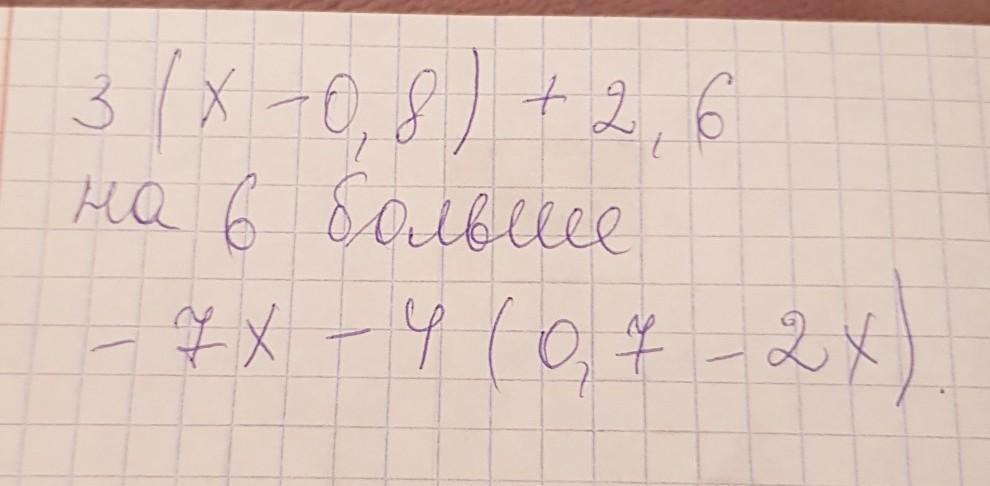 3 (x - 0,8) + 2,6
на 6 больше
- 7x - 4 (0,7 - 2x).